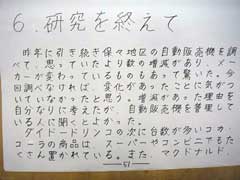 6.研究を終えて
昨年に引き続き保々地区の自動販売機を調
べて、思っていたより数の増減があり、メーカ
ーが変わっているものもあって驚いた。今
回調べなければ、変化があったことに気がつ
いていなかったと思う。増減があった理由を
自分なりに考えたが、自動販売機を管理して
いる人に聞くとよかった。
ダイドードリンコの次に台数が多いコカ・
コーラの商品は、スーパーやコンビニでもた
くさん置かれている。また、マクドナルド、
51